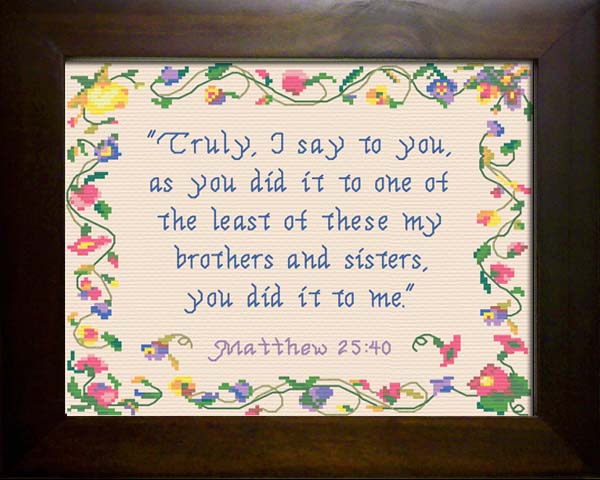 "Truly, I say to you,
as you did it to one of
the least of these my
brothers and sisters,
you did it to me."
Matthew 25:40